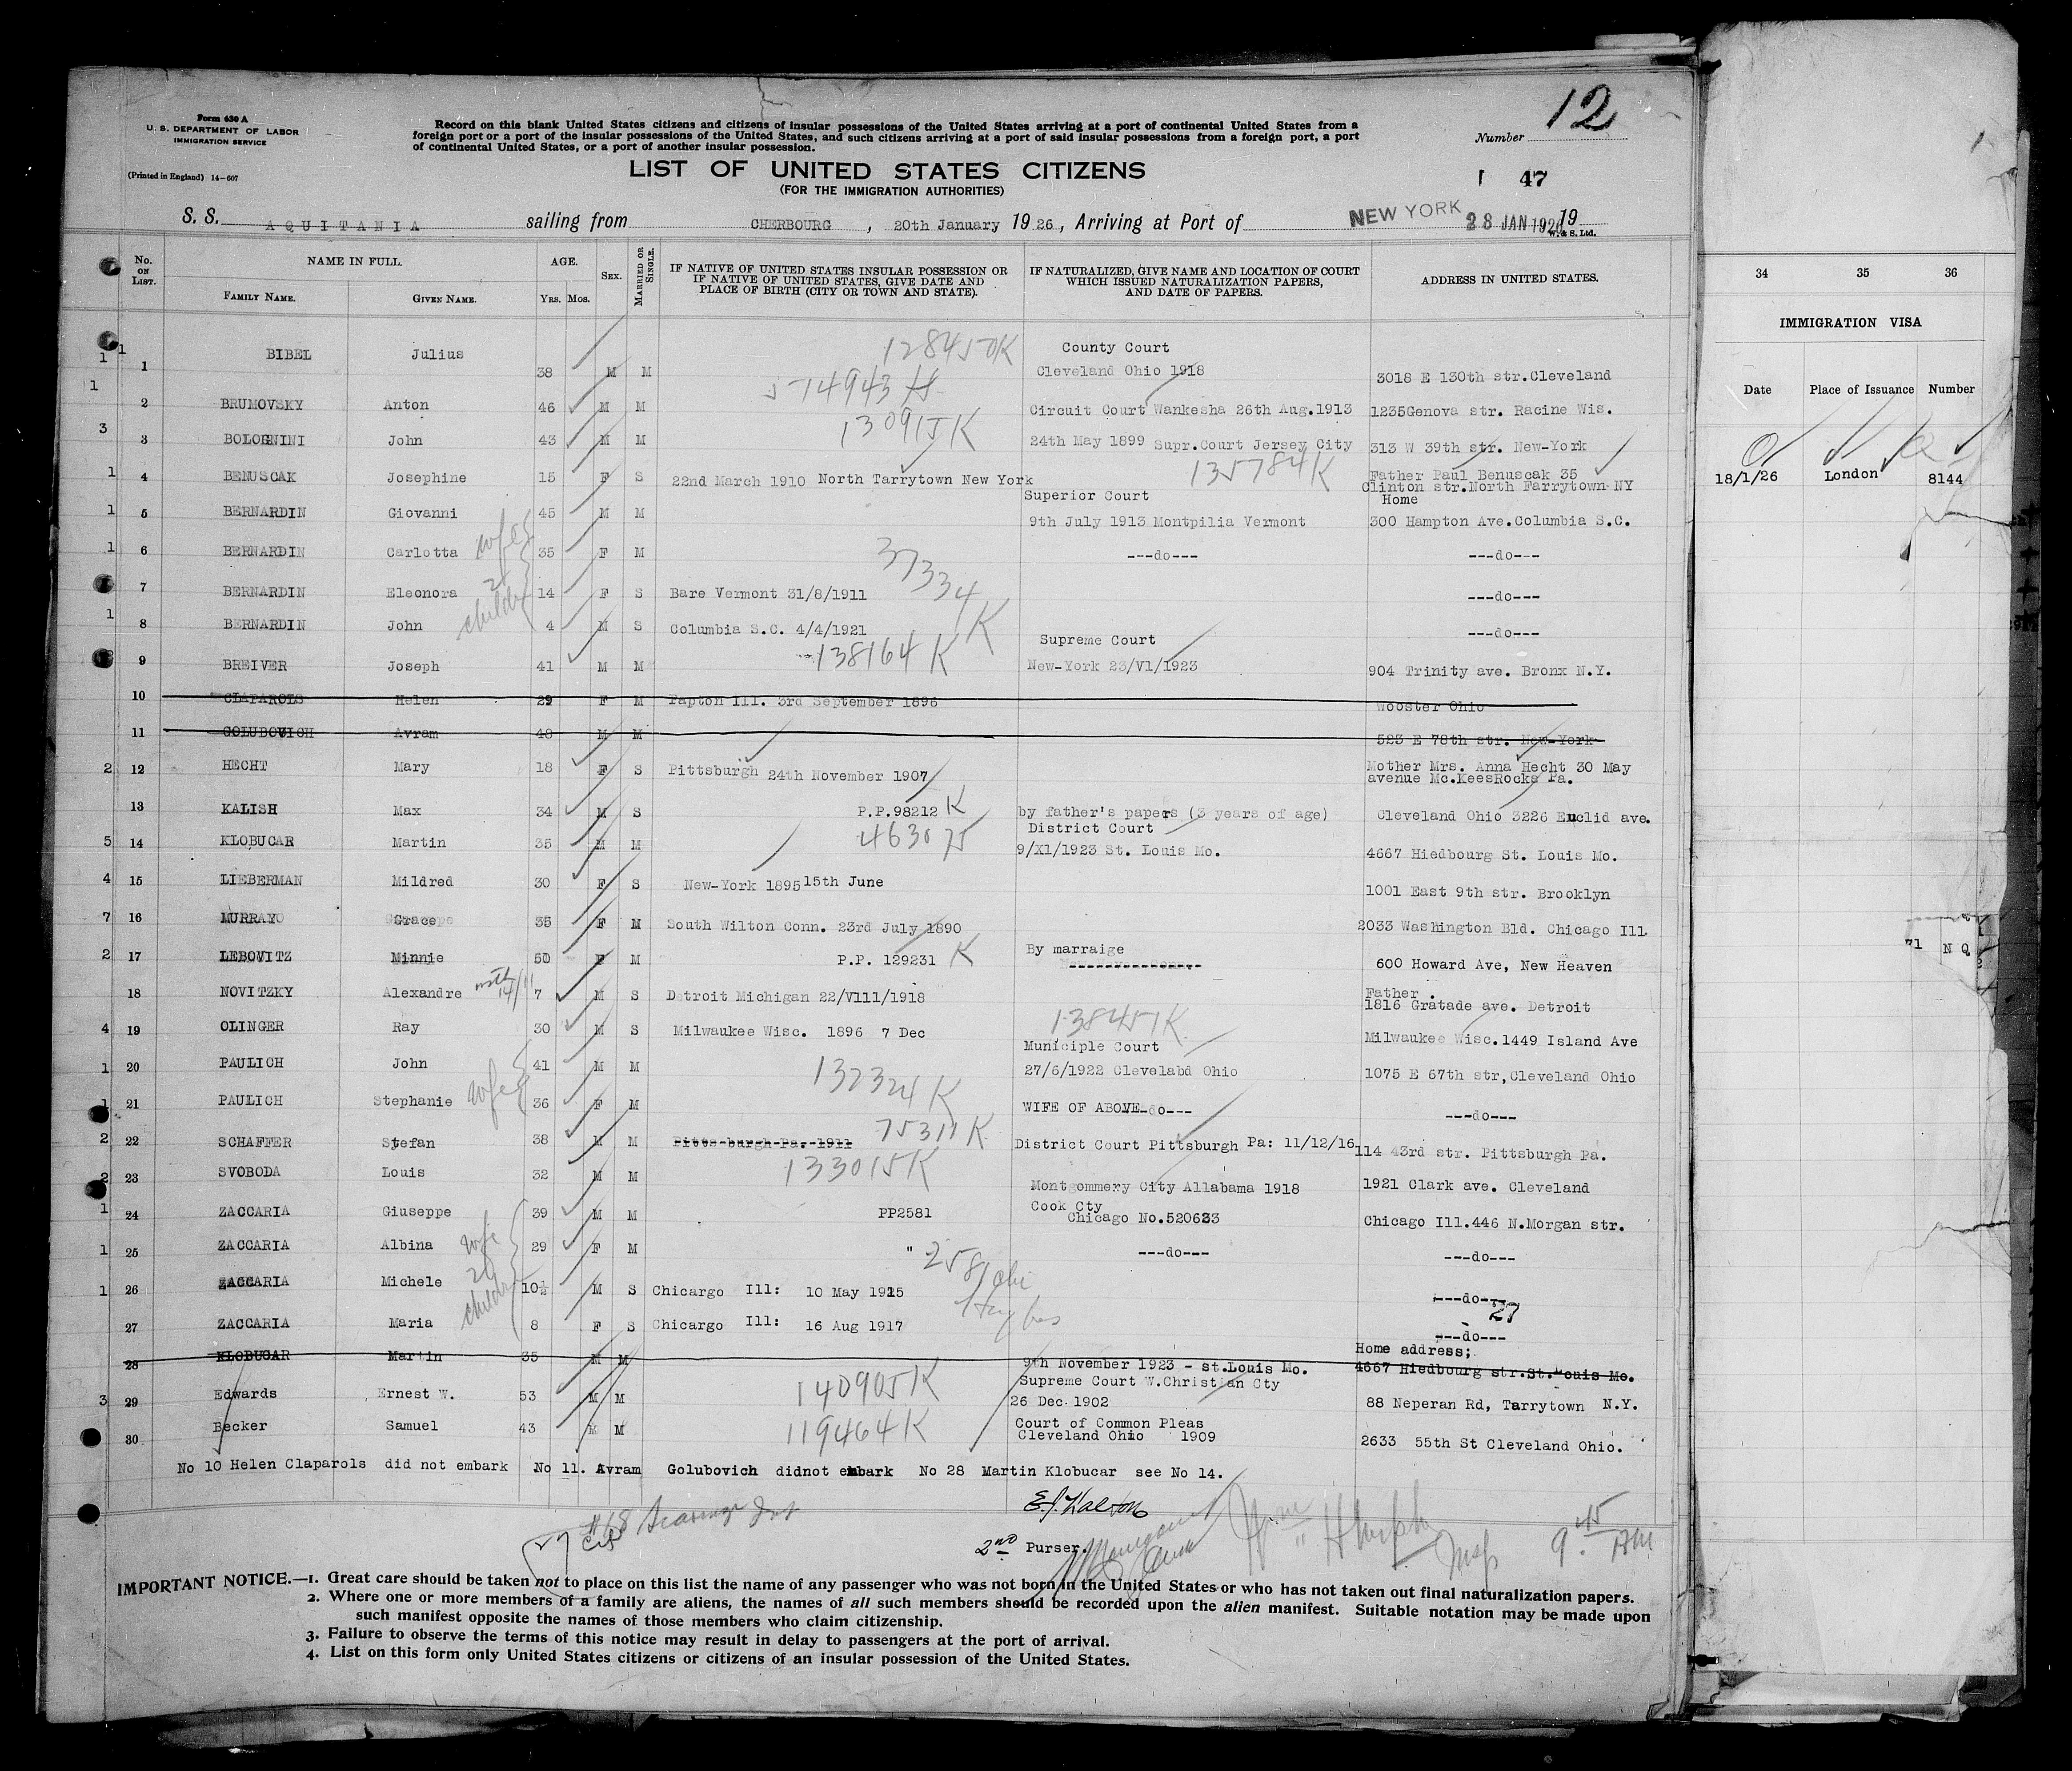 Form 630 A
U. S. DEPARTMENT OF LABOR
IMMIGRATION SERVICE
(Printed in England) 14-607
Record on this blank United States citizens and citizens of insular possessions of the United States arriving at a port of continental United States from a
foreign port or a port of the insular possessions of the United States, and such citizens arriving at a port of said insular possessions from a foreign port, a port
of continental United States, or a port of another insular possession.
Number 12
LIST OF UNITED STATES CITIZENS
(FOR THE IMMIGRATION AUTHORITIES)
47
S. S. AQUITANIA sailing from CHERBOURG, 20th January 1926, Arriving at Port of NEW YORK 28 JAN 1926 19
W. & S. Ltd.
No. ON LIST. NAME IN FULL. AGE. SEX. MARRIED OR SINGLE. IF NATIVE OF UNITED STATES INSULAR POSSESSION OR IF NATIVE OF UNITED STATES, GIVE DATE AND PLACE OF BIRTH (CITY OR TOWN AND STATE). IF NATURALIZED, GIVE NAME AND LOCATION OF COURT WHICH ISSUED NATURALIZATION PAPERS, AND DATE OF PAPERS. ADDRESS IN UNITED STATES.
FAMILY NAME. GIVEN NAME. YRS. MOS.
34 35 36
IMMIGRATION VISA
Date Place of Issuance Number
1 1 1 BIBEL Julius 38 M M 128450K County Court Cleveland Ohio 1918 3018 E 130th str.Cleveland
1 2 BRUMOVSKY Anton 46 M M 574943 Circuit Court Wankesha 26th Aug.1913 1235Genova str. Racine Wis.
3 3 BOLOGNINI John 43 M M 130915K 24th May 1899 Supr.Court Jersey City 313 W 39th str. New-York
1 4 BENUSCAK Josephine 15 F S 22nd March 1910 North Tarrytown New York 135784K Father Paul Benuscak 35 Clinton str.North Farrytown NY 18/1/26 London 8144
1 5 BERNARDIN Giovanni 45 M M Superior Court 9th July 1913 Montpilia Vermont Home 300 Hampton Ave.Columbia S.C.
1 6 BERNARDIN Carlotta wife 35 F M ---do--- ---do---
7 BERNARDIN Eleonora 2 14 F S Bare Vermont 31/8/1911 37334 K ---do---
1 8 BERNARDIN John 4 M S Columbia S.C. 4/4/1921 ---do---
9 BREIVER Joseph 41 M M 138164 K Supreme Court New-York 23/V1/1923 904 Trinity ave. Bronx N.Y.
10 CLAPAROLS Helen 29 F M Papton Ill. 3rd September 1896 Wooster Ohio
11 GOLUBOVICH Avram 48 M M 523 E 78th str. New-York
2 12 HECHT Mary 18 F S Pittsburgh 24th November 1907 Mother Mrs. Anna Hecht 30 May avenue Mc.KeesRocks Pa.
13 KALISH Max 34 M S P.P.98212 K by father's papers (3 years of age) Cleveland Ohio 3226 Euclid ave.
5 14 KLOBUCAR Martin 35 M M 463075 District Court 9/X1/1923 St. Louis Mo. 4667 Hiedbourg St. Louis Mo.
4 15 LIEBERMAN Mildred 30 F S New-York 1895 15th June 1001 East 9th str. Brooklyn
7 16 MURRAY Grace 35 F M South Wilton Conn. 23rd July 1890 2033 Washington Bld. Chicago Ill
2 17 LEBOVITZ Minnie 50 F M P.P. 129231 K By marraige 600 Howard Ave, New Heaven
71 N Q
18 NOVITZKY Alexandre 7 M S Detroit Michigan 22/V111/1918 Father. 1816 Gratade ave. Detroit
4 19 OLINGER Ray 30 M S Milwaukee Wisc. 1896 7 Dec 138451K Milwaukee Wisc.1449 Island Ave
1 20 PAULICH John 41 M M 132324 K Municiple Court 27/6/1922 Clevelabd Ohio 1075 E 67th str,Cleveland Ohio
1 21 PAULICH Stephanie wife 36 F M WIFE OF ABOVE-do--- ---do---
2 22 SCHAFFER Stefan 38 M M Pitts-burgh-Pa.-1911 75311 K District Court Pittsburgh Pa: 11/12/16 114 43rd str. Pittsburgh Pa.
2 23 SVOBODA Louis 32 M M 133015K Montgommery City Allabama 1918 1921 Clark ave. Cleveland
1 24 ZACCARIA Giuseppe 39 M M PP2581 Cook Cty Chicago No.520633 Chicago Ill.446 N.Morgan str.
1 25 ZACCARIA Albina wife 29 F M " 2581 ---do--- ---do---
1 26 ZACCARIA Michele 10½ M S Chicargo Ill: 10 May 1915 ---do---
27
27 ZACCARIA Maria 8 F S Chicargo Ill: 16 Aug 1917 ---do---
28 KLOBUCAR Martin 35 M M 9th November 1923 - st.Louis Mo. Home address; 4667 Hiedbourg str.St.Louis Mo.
3 29 Edwards Ernest W. 53 M M 140905K Supreme Court W.Christian Cty 26 Dec. 1902 88 Neperan Rd, Tarrytown N.Y.
30 Becker Samuel 43 M M 119464K Court of Common Pleas Cleveland Ohio 1909 2633 55th St Cleveland Ohio.
No 10 Helen Claparols did not embark No 11. Avram Golubovich didnot embark No 28 Martin Klobucar see No 14.
2nd Purser.
9.45 AM
IMPORTANT NOTICE.—1. Great care should be taken not to place on this list the name of any passenger who was not born in the United States or who has not taken out final naturalization papers.
2. Where one or more members of a family are aliens, the names of all such members should be recorded upon the alien manifest. Suitable notation may be made upon
such manifest opposite the names of those members who claim citizenship.
3. Failure to observe the terms of this notice may result in delay to passengers at the port of arrival.
4. List on this form only United States citizens or citizens of an insular possession of the United States.